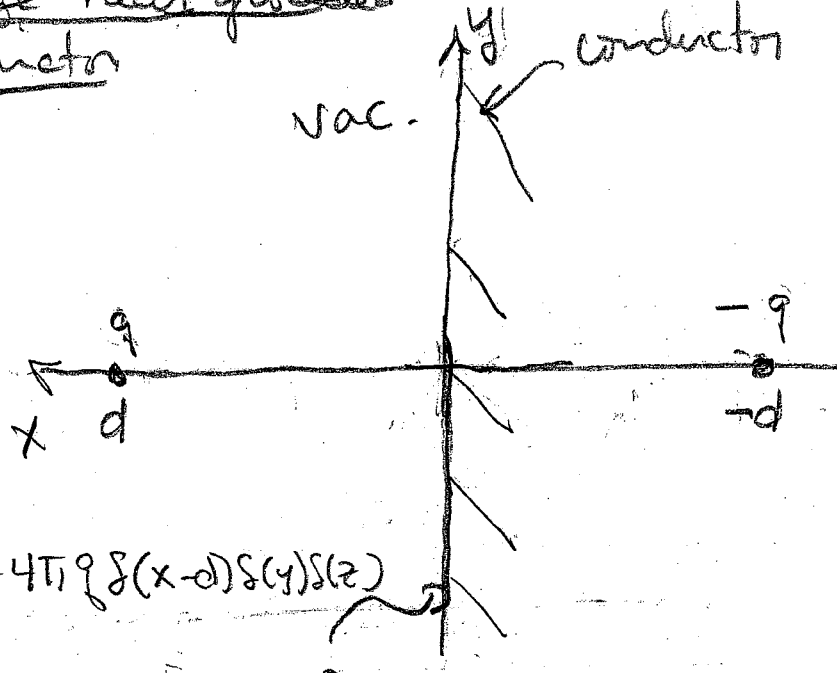 uctor
y
conductor
vac.
q
- q
x
d
-d
4π q δ(x-d)δ(y)δ(z)